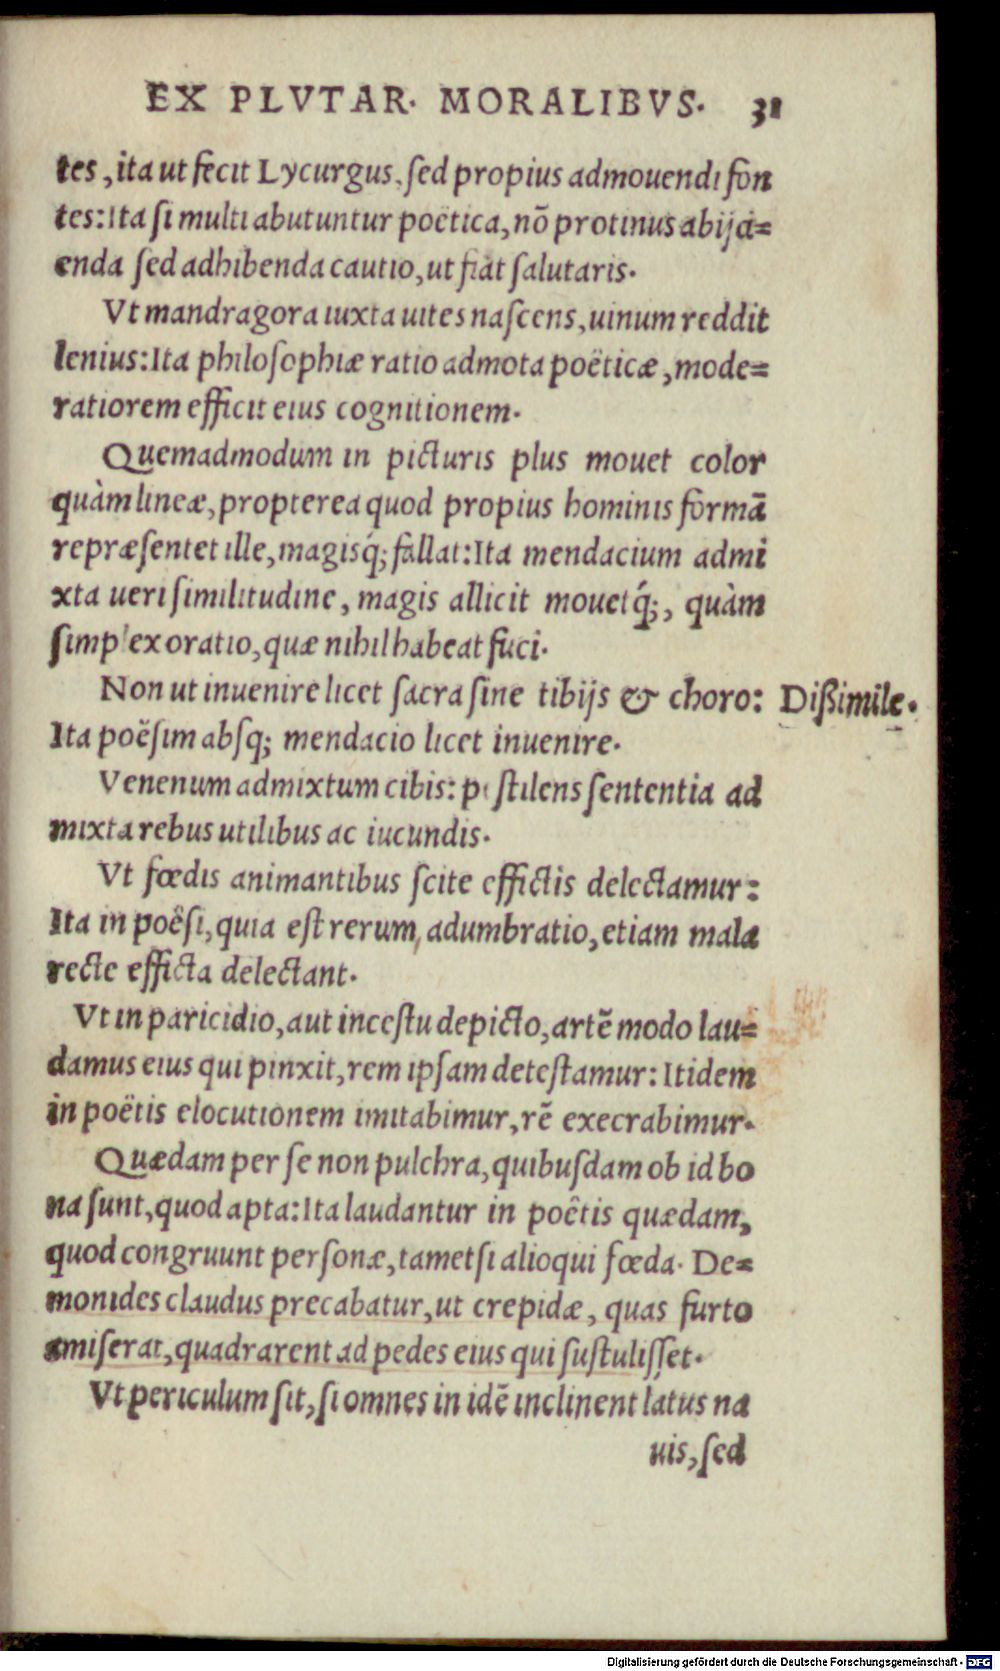 EX PLVTAR. MORALIBVS. 31
tes, ita ut fecit Lycurgus, sed propius admouendi fon
tes: Ita si multi abutuntur poëtica, nõ protinus abijci=
enda sed adhibenda cautio, ut fiat salutaris.
Vt mandragora iuxta uites nascens, uinum reddit
lenius: Ita philosophiæ ratio admota poëticæ, mode=
ratiorem efficit eius cognitionem.
Quemadmodum in picturis plus mouet color
quàm lineæ, propterea quod propius hominis formã
repræsentet ille, magisq́; fallat: Ita mendacium admi
xta ueri similitudine, magis allicit mouetq́;, quàm
simplex oratio, quæ nihil habeat fuci.
Non ut inuenire licet sacra sine tibijs & choro: Dißimile.
Ita poësim absq; mendacio licet inuenire.
Venenum admixtum cibis: pestilens sententia ad
mixta rebus utilibus ac iucundis.
Vt fœdis animantibus scite effictis delectamur:
Ita in poësi, quia est rerum, adumbratio, etiam mala
recte efficta delectant.
Vt in paricidio, aut incestu depicto, artẽ modo lau=
damus eius qui pinxit, rem ipsam detestamur: Itidem
in poëtis elocutionem imitabimur, rẽ execrabimur.
Quædam per se non pulchra, quibusdam ob id bo
na sunt, quod apta: Ita laudantur in poëtis quædam,
quod congruunt personæ, tametsi alioqui fœda. De=
monides claudus precabatur, ut crepidæ, quas furto
amiserat, quadrarent ad pedes eius qui sustulisset.
Vt periculum sit, si omnes in idẽ inclinent latus na
uis, sed
Digitalisierung gefördert durch die Deutsche Forschungsgemeinschaft - DFG